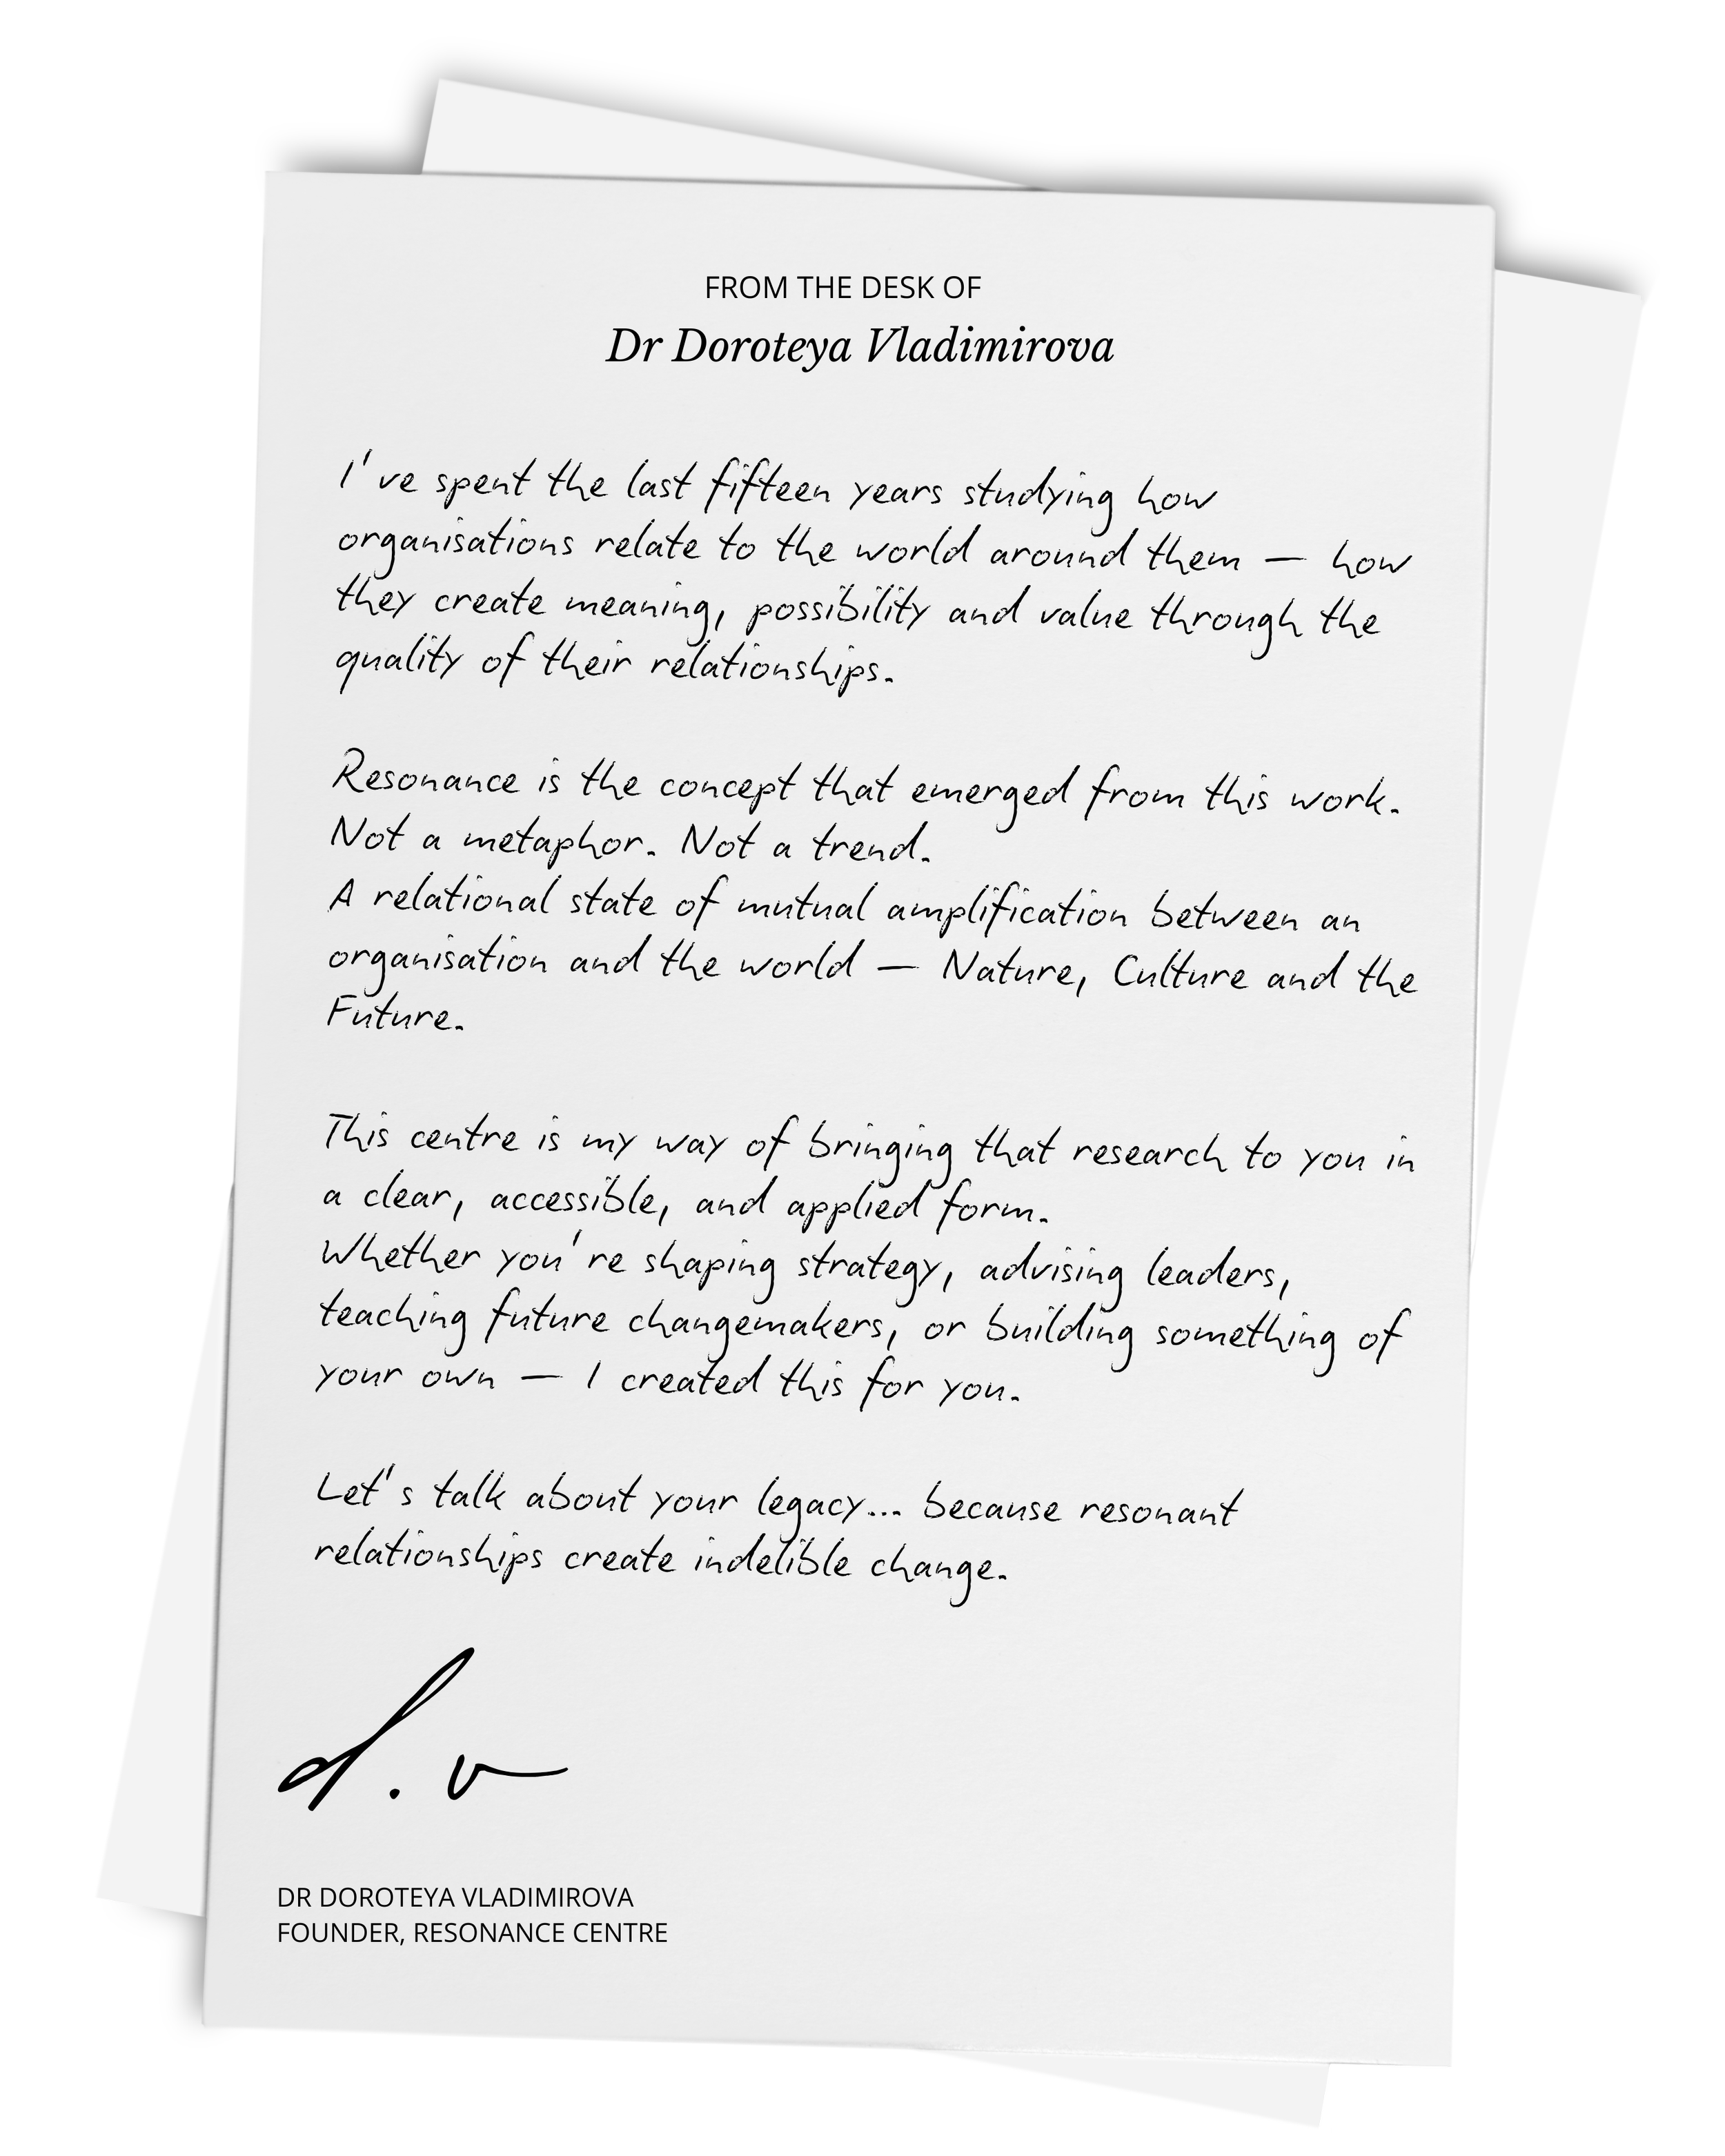 FROM THE DESK OF
Dr Doroteya Vladimirova
I've spent the last fifteen years studying how
organisations relate to the world around them — how
they create meaning, possibility and value through the
quality of their relationships.
Resonance is the concept that emerged from this work.
Not a metaphor. Not a trend.
A relational state of mutual amplification between an
organisation and the world — Nature, Culture and the
Future.
This centre is my way of bringing that research to you in
a clear, accessible, and applied form.
Whether you're shaping strategy, advising leaders,
teaching future changemakers, or building something of
your own — I created this for you.
Let's talk about your legacy... because resonant
relationships create indelible change.
d. v
DR DOROTEYA VLADIMIROVA
FOUNDER, RESONANCE CENTRE